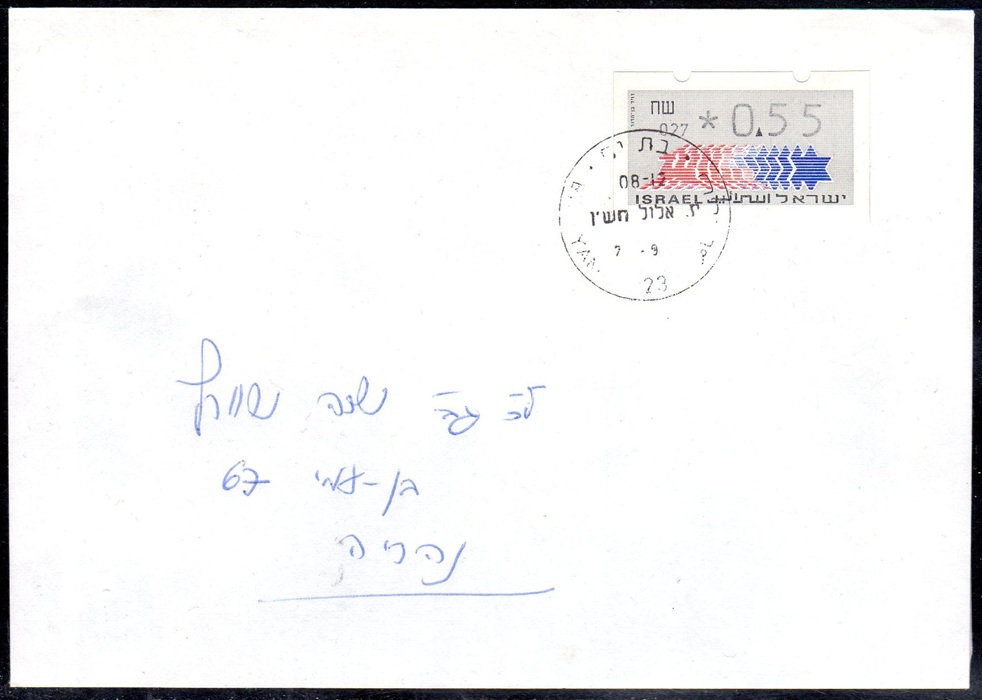 שח
027 *0.55
ISRAEL ישראל
בת ים
08-12
י"ז אלול תש"ן
7 -9
YAM
23
לכ' גב' שנה שוורץ
בן-עמי 67
נהריה